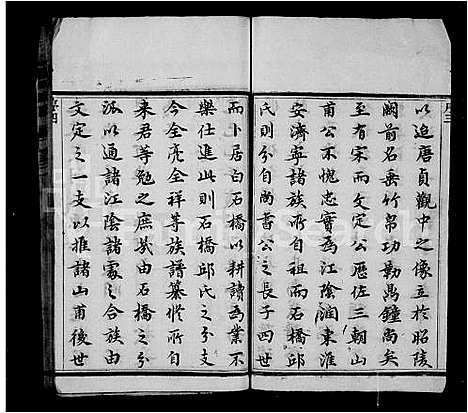 以迨唐貞觀中之像立於昭陵
闕前名垂竹帛功勒鼎鐘尚矣
至有宋而文定公歷佐三朝山
甫公不愧忠實為江陰潤東淮
安濟寧諸族所自祖而石橋邱
氏則分自尚書公之長子四世
而卜居白石橋以耕讀為業不
樂仕進此則石橋邱氏之分支
今全亮全祥等族譜纂修所自
來君等勉之庶幾由石橋之分
派以通諸江陰諸處之合族由
文定之一支以推諸山甫後世
序三
序四